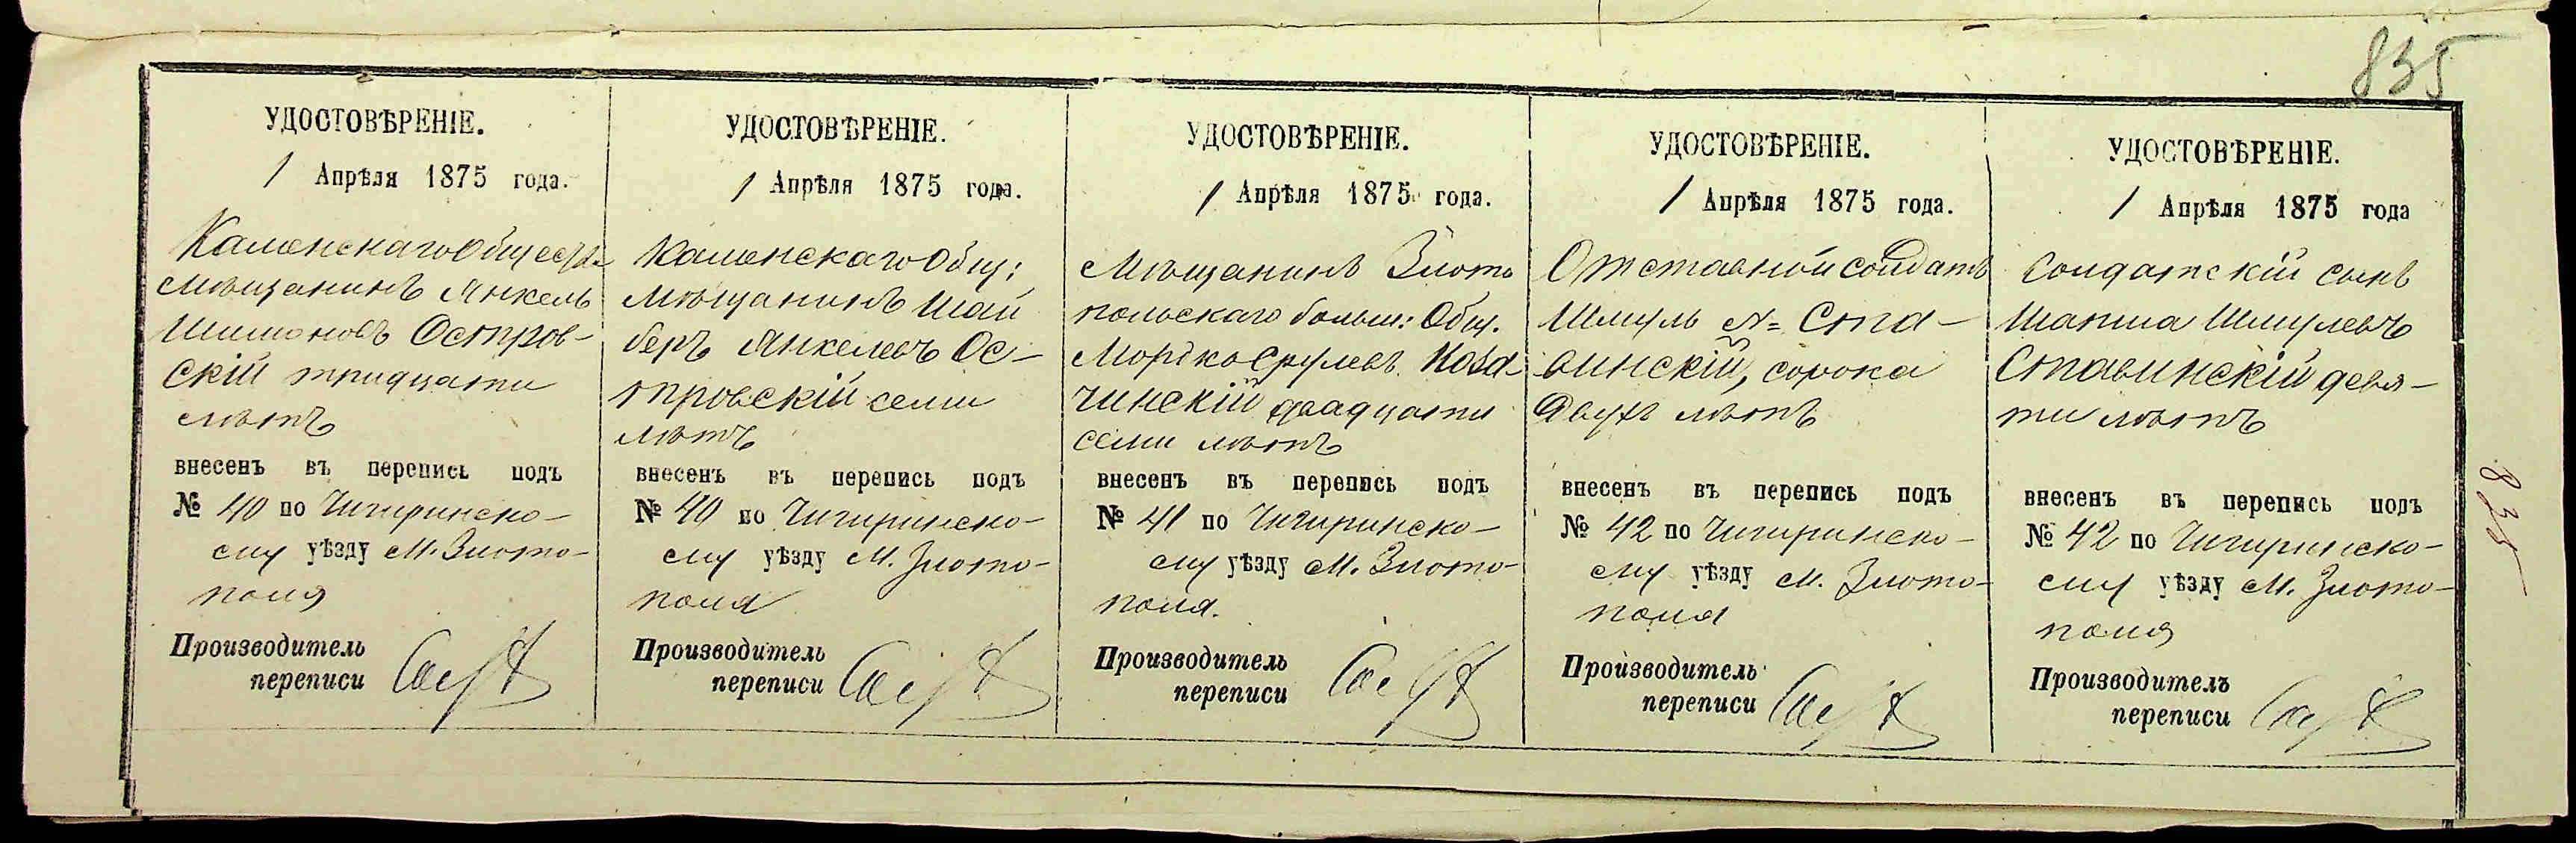 835
УДОСТОВѢРЕНІЕ.
1 Апрѣля 1875 года.
Каменскаго Общест.
мѣщанинъ Янкель
Шимоновъ Остров-
скій тридцати
лѣтъ
внесенъ въ перепись подъ
№ 40 по Чигиринско-
му уѣзду М. Злото-
поля
Производитель
переписи
УДОСТОВѢРЕНІЕ.
1 Апрѣля 1875 года.
Каменскаго Общ:
мѣщанинъ Шай
беръ Янкелевъ Ос-
тровскій семи
лѣтъ
внесенъ въ перепись подъ
№ 40 по Чигиринско-
му уѣзду М. Злото-
поля
Производитель
переписи
УДОСТОВѢРЕНІЕ.
1 Апрѣля 1875 года.
Мѣщанинъ Злото
польскаго больш: Общ.
Мордко Срулевъ Коза-
чинскій двадцати
семи лѣтъ
внесенъ въ перепись подъ
№ 41 по Чигиринско-
му уѣзду М. Злото-
поля.
Производитель
переписи
УДОСТОВѢРЕНІЕ.
1 Апрѣля 1875 года.
Отставной солдатъ
Шмуль Ста-
винскій, сорока
двухъ лѣтъ
внесенъ въ перепись подъ
№ 42 по Чигиринско-
му уѣзду М. Злото-
поля
Производитель
переписи
УДОСТОВѢРЕНІЕ.
1 Апрѣля 1875 года
Солдатскій сынъ
Шапша Шмулевъ
Ставинскій девя-
ти лѣтъ
внесенъ въ перепись подъ
№ 42 по Чигиринско-
му уѣзду М. Злото-
поля
Производитель
переписи
835